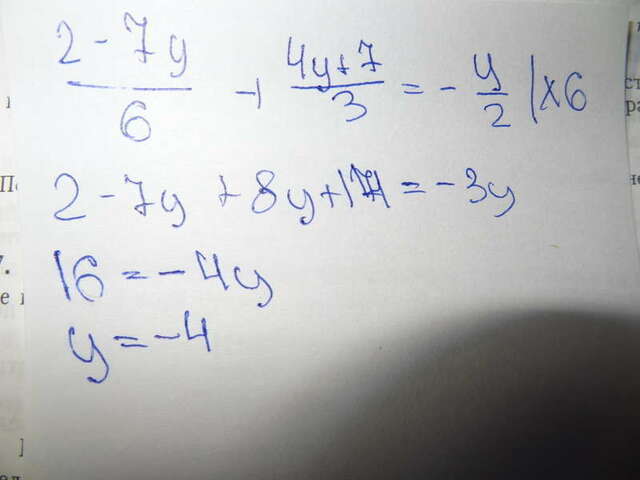 2-7y/6 + 4y+7/3 = -y/2 |×6
2-7y+8y+14=-3y
16=-4y
y=-4